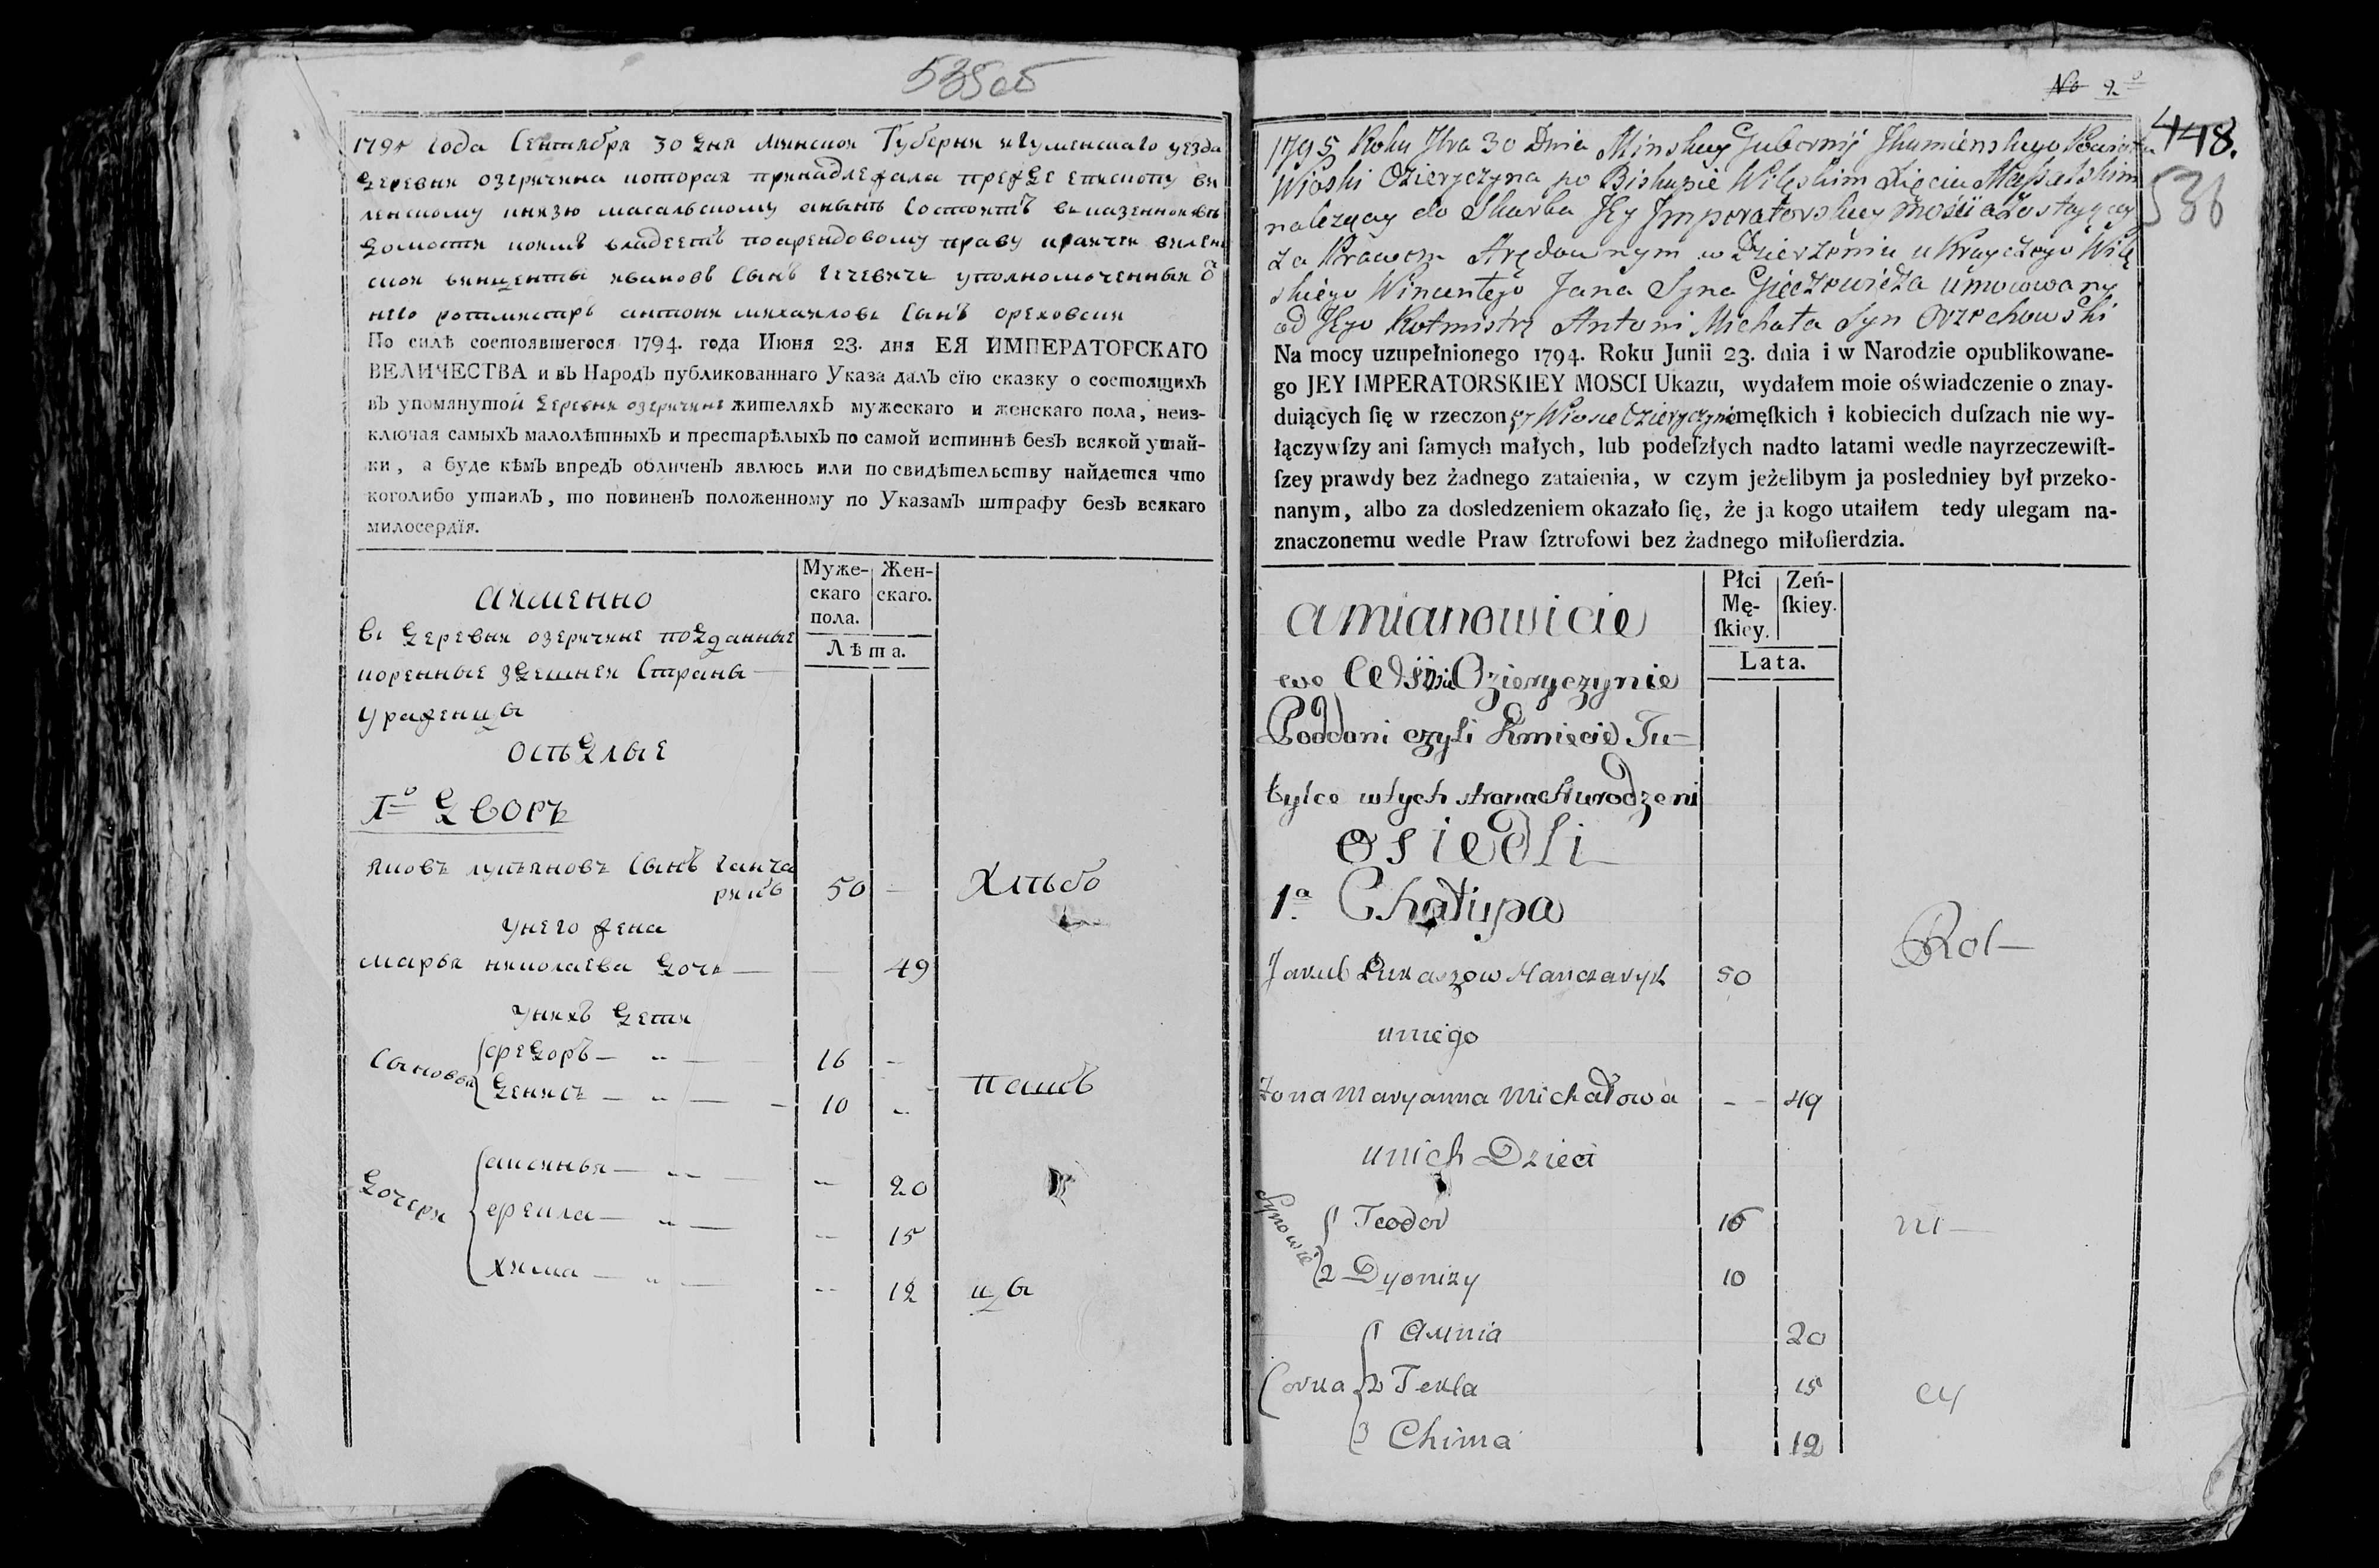 535об
1795 года Сентября 30 дня минской Губерни игуменскаго уезда
деревни озеричина которая принадлежала прежде епископу ви
ленскому князю масальскому анынѣ Состоитъ вказенномъ вѣ
домости коимъ владеетъ поарендовому праву крайчей вилен
ской винценты ивановъ Сынъ гечевичь уполномоченный о
него ротмистръ антони михайловъ Сынъ ореховски
По силѣ состоявшегося 1794. года Июня 23. дня ЕЯ ИМПЕРАТОРСКАГО
ВЕЛИЧЕСТВА и въ Народъ публикованнаго Указа далъ сїю сказку о состоящихъ
въ упомянутой деревни озеричине жителяхъ мужескаго и женскаго пола, неиз-
ключая самыхъ малолѣтныхъ и престарѣлыхъ по самой истиннѣ безъ всякой утай-
ки, а буде кѣмъ впредъ обличенъ явлюсь или по свидѣтельству найдется что
коголибо утаилъ, то повиненъ положенному по Указамъ штрафу безъ всякаго
милосердїя.
Муже-
скаго
пола.
Жен-
скаго.
Лѣта.
аименно
въ деревни озеричине подданные
коренные здешней Страны
уроженцы
оседлые
1о дворъ
яковъ лукьяновъ Сынъ ганча
рикъ 50 — Хлѣбо
унего жена
марья николаева дочь — — 49
унихъ дети
Сыновья федоръ — 16 —
денисъ — 10 — пашъ
дочери аксинья — — 20
фекла — — 15
хима — — 12 цы
No 2
448.
536
1795 Roku 7bra 30 Dnia Minskiey Gubernij Jhumienskiego Powiatu
Wioski Ozieryczyna po Biskupie Wileńskim Xięciu Massalskim
należący do Skarbu Jey Jmperatorskiey Mości a Zostający
za Prawem Arędownym w Dzierżeniu u Krayczego Wilę
skiego Wincentego Jana Syna Gieczewicza umocowany
od Jego Rotmistrz Antoni Michała Syn Orzechowski
Na mocy uzupełnionego 1794. Roku Junii 23. dnia i w Narodzie opublikowane-
go JEY IMPERATORSKIEY MOSCI Ukazu, wydałem moie oświadczenie o znay-
duiących ſię w rzeczoney Wiosce Ozieryczynie męſkich i kobiecich duſzach nie wy-
łączywſzy ani ſamych małych, lub podeſzłych nadto latami wedle nayrzeczewiſt-
ſzey prawdy bez żadnego zataienia, w czym jeżelibym ja posledniey był przeko-
nanym, albo za dosledzeniem okazało ſię, że ja kogo utaiłem tedy ulegam na-
znaczonemu wedle Praw ſztrofowi bez żadnego miłoſierdzia.
Płci
Mę-
ſkiey.
Zeń-
ſkiey.
Lata.
amianowicie
we Ozieryczynie
Poddani czyli Kmiecie Tu-
tylce wtych stronach urodzeni
osiedli
1a. Chałupa
Jakub Łukaszow Hanczaryk 50 Rol—
uniego
Zona Maryanna Michałowa - - 49
unich Dzieci
Synowie 1 Teodor 16 ni—
2 Dyonizy 10
1 Aunia 20
Corka 2 Tekla 15 cy
3 Chima 12